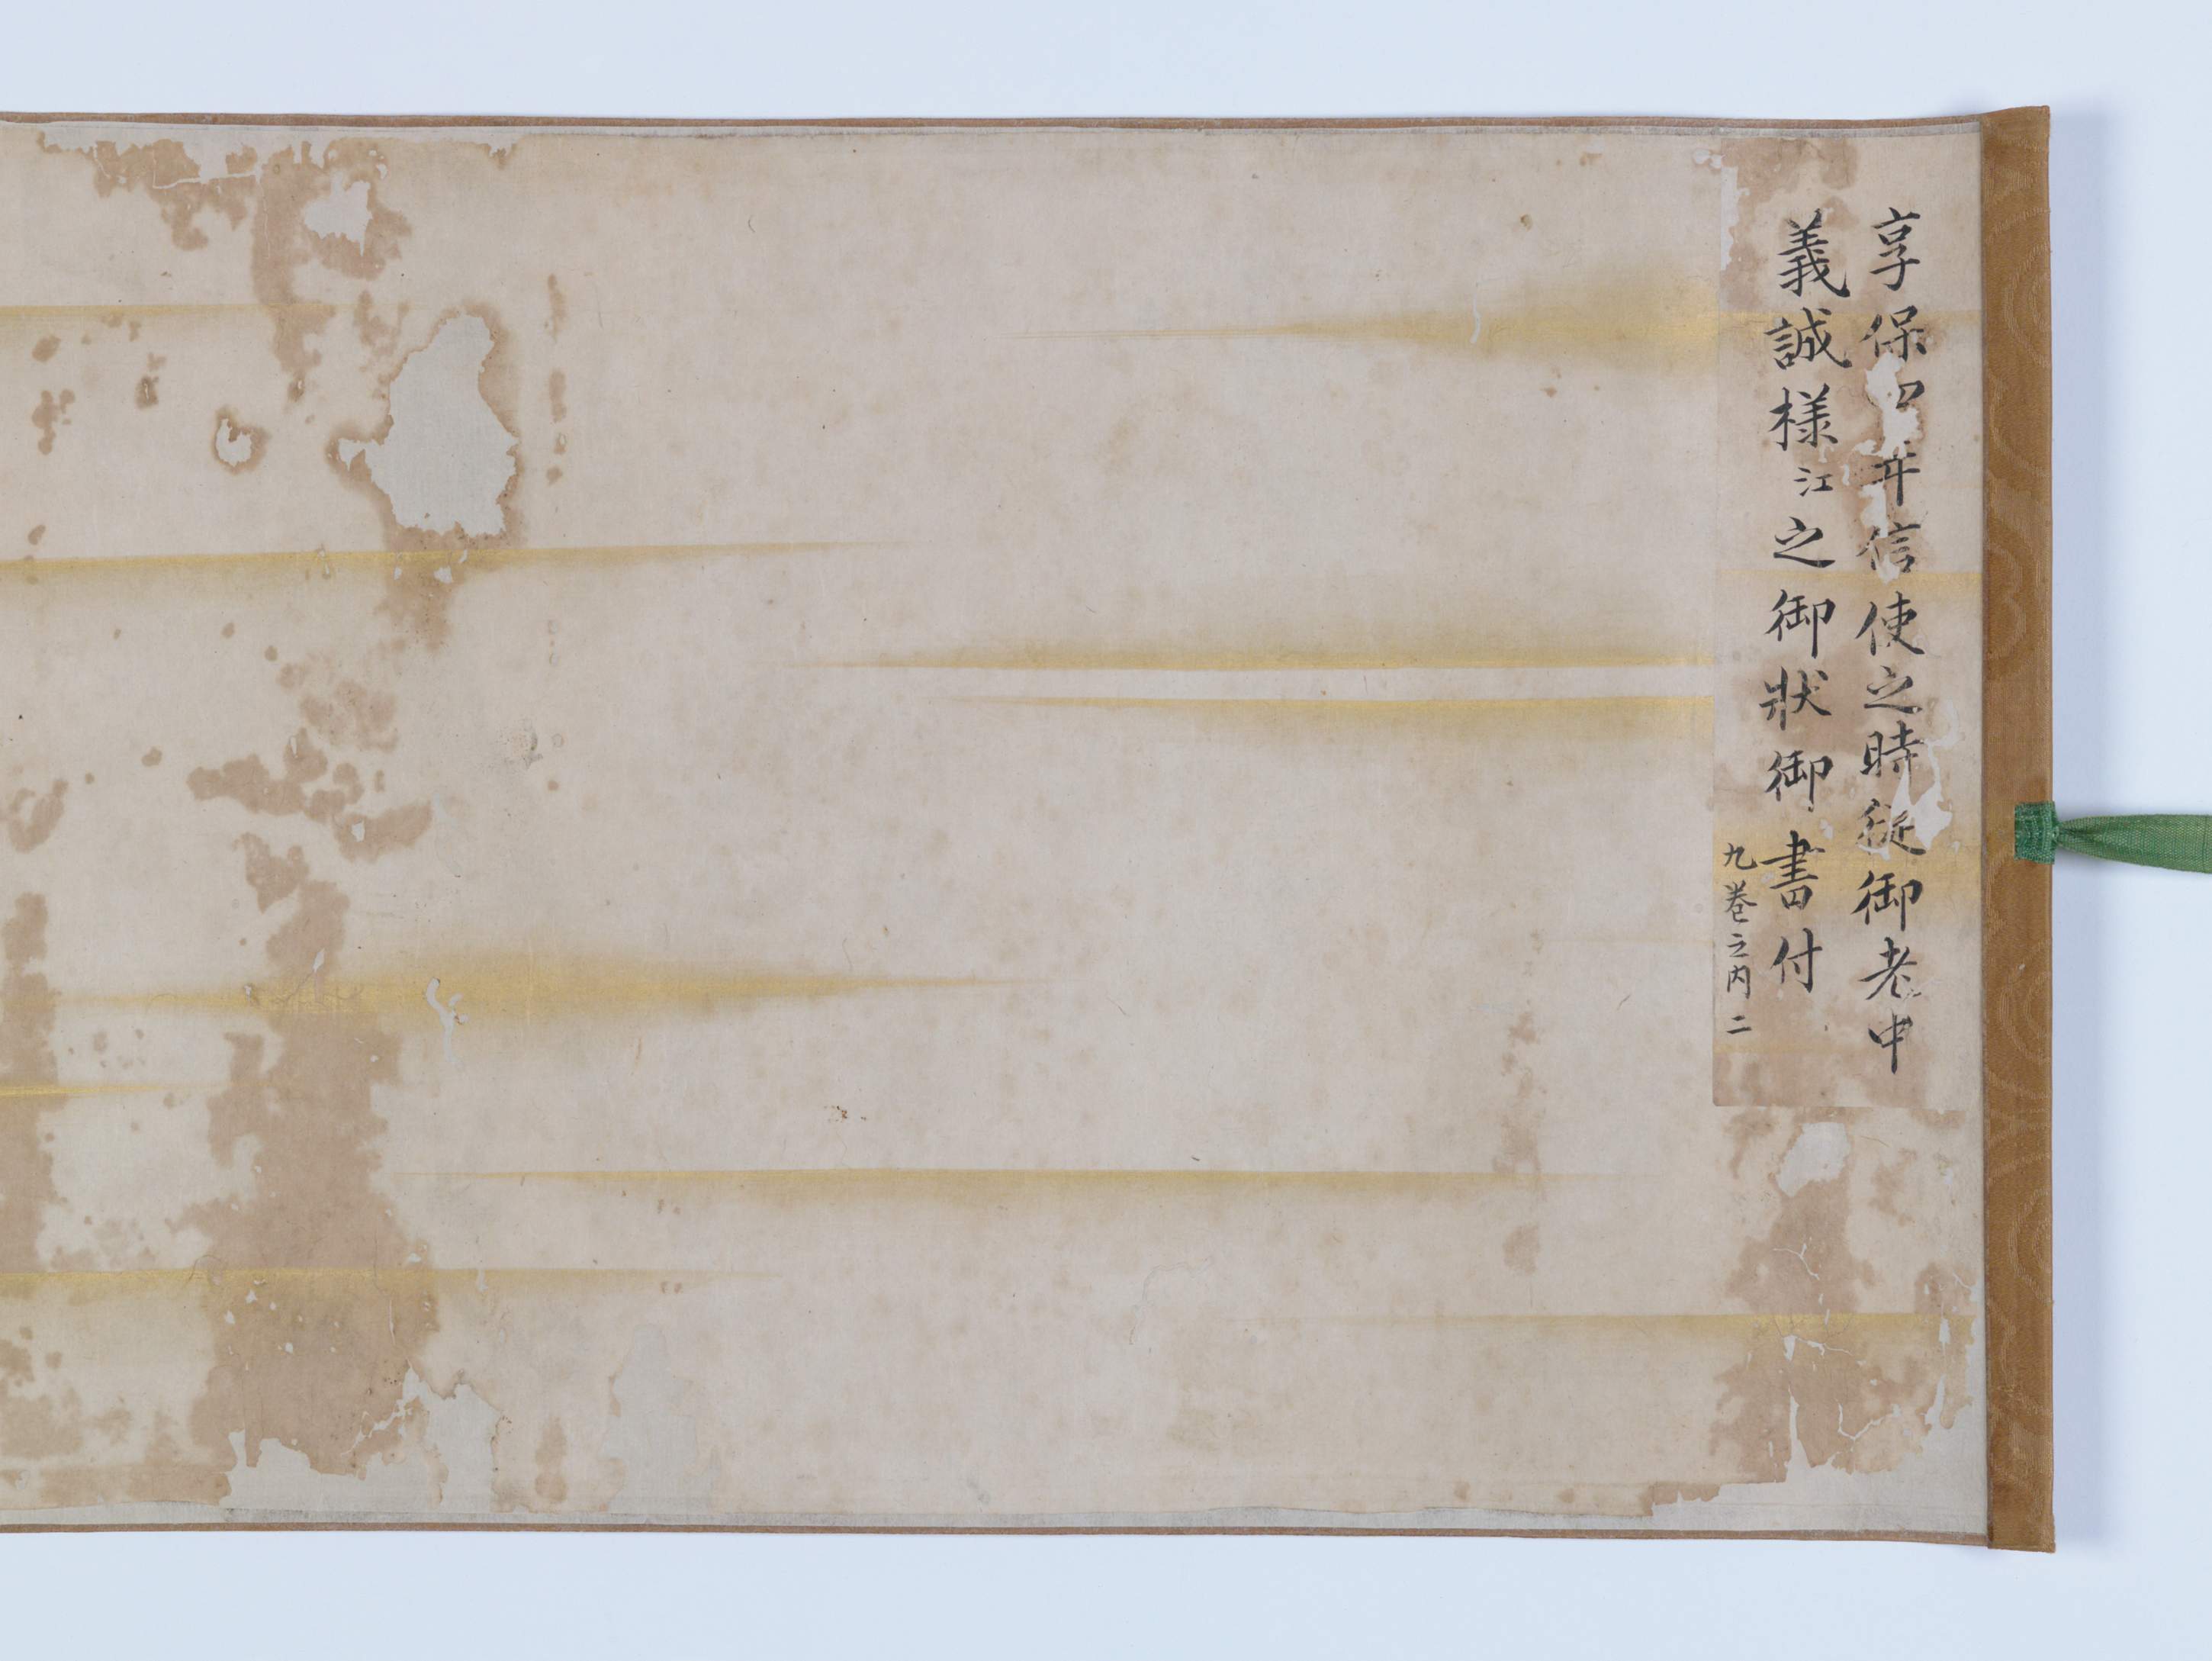 享保四年信使之時從御老中
義誠様江之御状御書付
九巻之内二